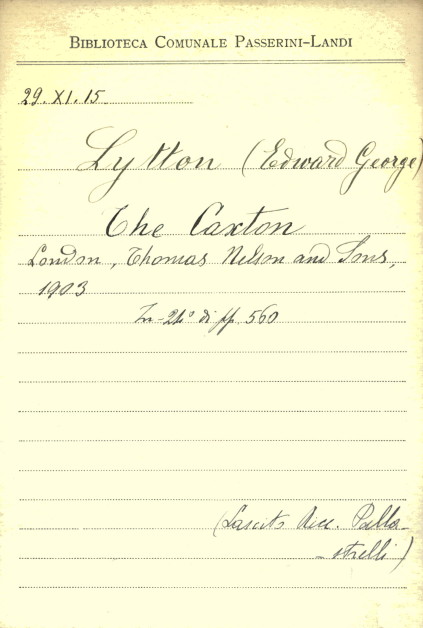 BIBLIOTECA COMUNALE PASSERINI-LANDI
29. XI. 15
Lytton (Edward George)
The Caxton
London, Thomas Nelson and Sons,
1903
In-24° di pp. 560
(Lascito Palla-
-strelli)